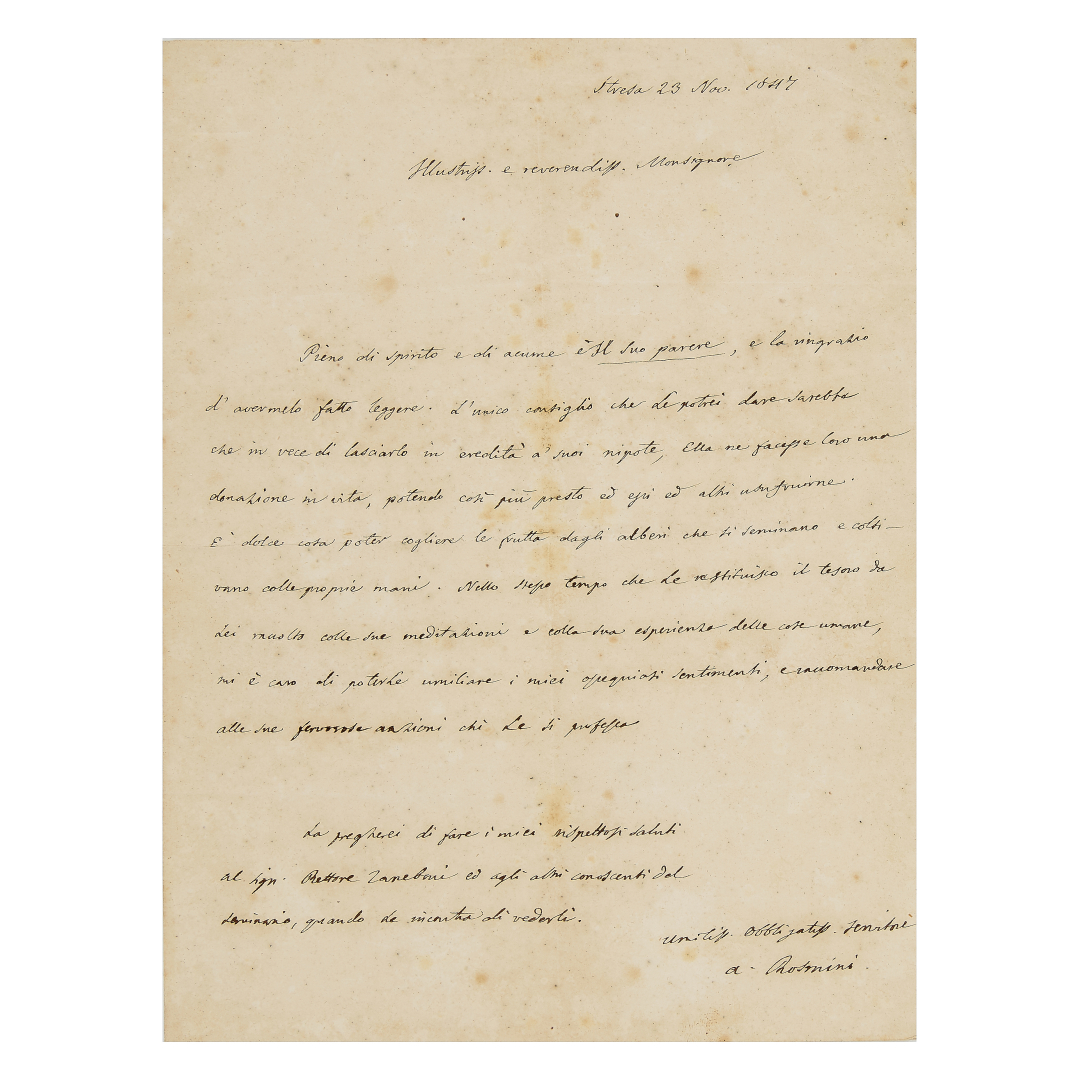 Stresa 23 Nov. 1847
Illustriss. e reverendiss. Monsignore
Pieno di spirito e di acume è Il suo parere, e la ringrazio
d'avermelo fatto leggere. L'unico consiglio che Le potrei dare sarebbe
che in vece di lasciarlo in eredità a' suoi nipote, Ella ne facesse loro una
donazione in vita, potendo così più presto ed essi ed altri usufruirne.
È dolce cosa poter cogliere le frutta dagli alberi che si seminano e colti-
vano colle proprie mani. Nello stesso tempo che Le restituisco il tesoro da
Lei raccolto colle sue meditazioni e colla sua esperienza delle cose umane,
mi è caro di poterLe umiliare i miei ossequiosi sentimenti, e raccomandare
alle sue fervorose orazioni chi Le si professa
La pregherei di fare i miei rispettosi saluti
al Sign. Rettore Zaneboni ed agli altri conoscenti del
seminario, quando Le incontra di vederli.
umiliss. obbligatiss. servitore
a. Rosmini.